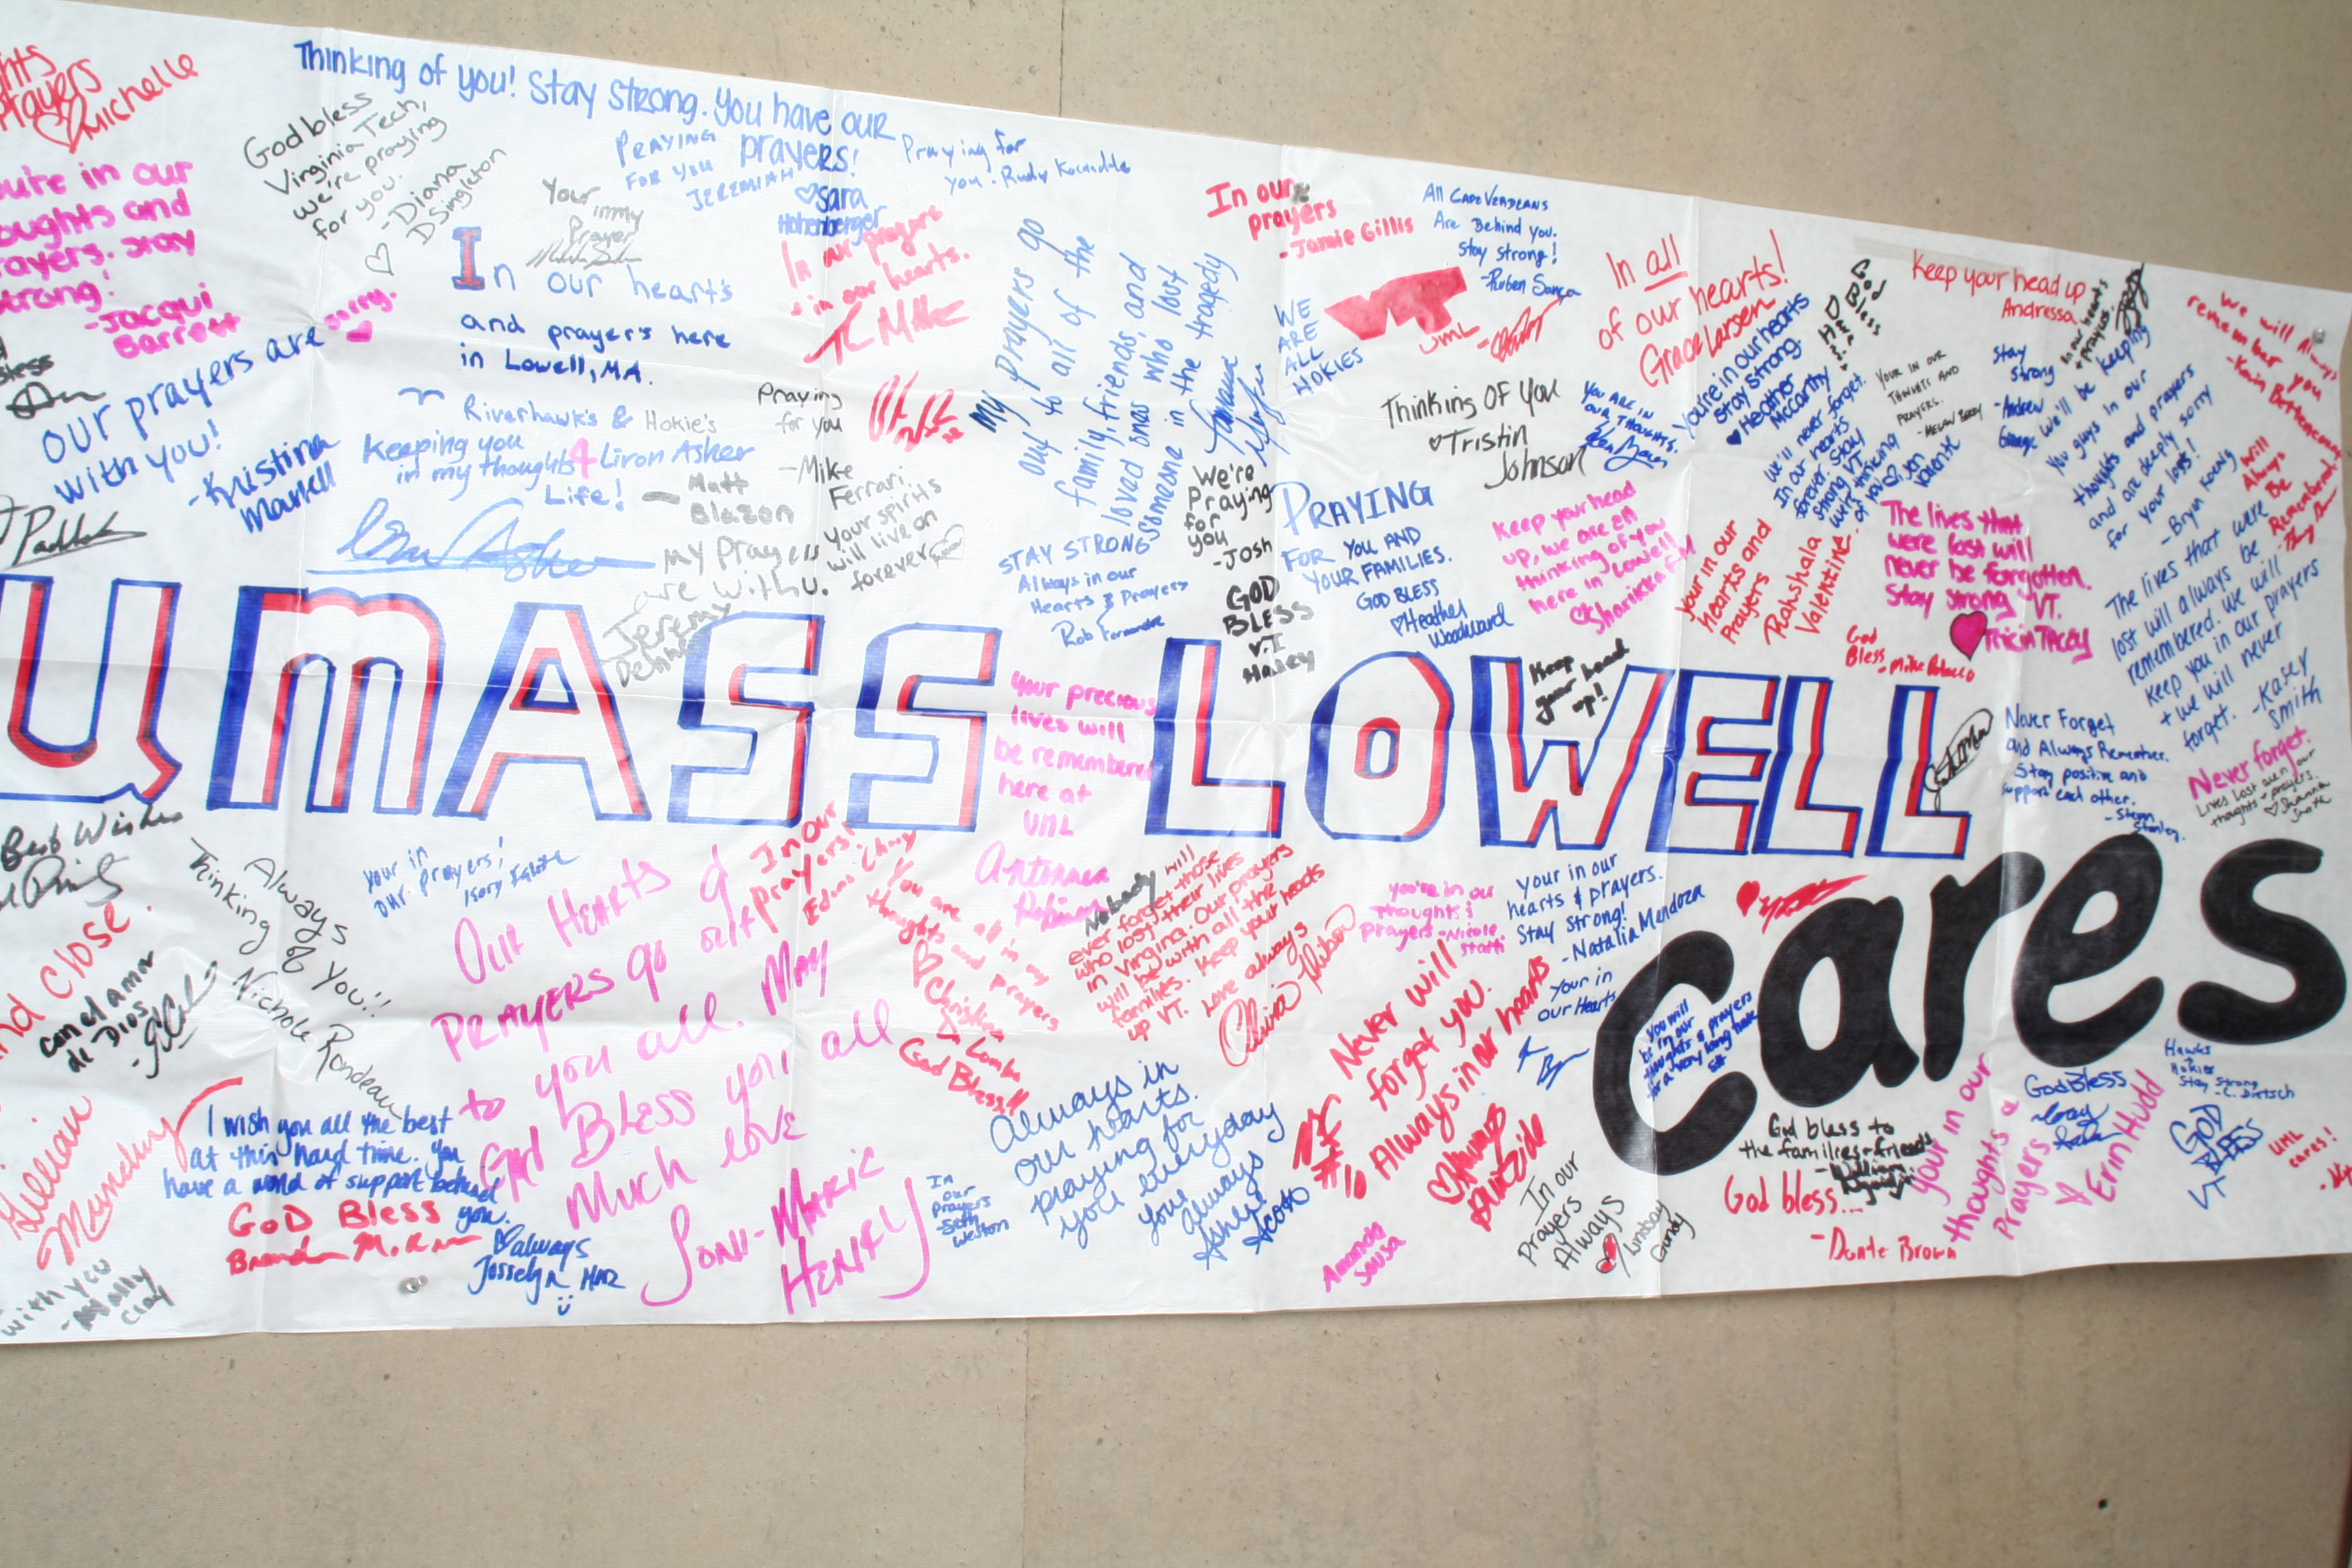 Michelle
Thinking of you! Stay strong. You have our
prayers!
♡Sara
Hohenberger
God bless
Virginia Tech,
we're praying
for you.
-Diana
DSingleton
PRAYING
FOR YOU
JEREMIAH
Praying for
you. Rudy
Your
in my
Prayer
In our
prayers
-Jamie Gillis
All Cape Verdeans
Are Behind you.
Stay strong!
-Ruben
In all
of our hearts!
Grace Larsen
God
Bless
Keep your head up
Andressa
In our hearts
+ prayers
we will always
remember you
-Kevin
in our
and
Stay
-Jacqui
Barrett
sorry.
In our hearts
and prayer's here
in Lowell, MA.
In our prayers
+ in our hearts.
My prayers go
out to all of the
family, friends, and
loved ones who lost
someone in the tragedy
WE
ARE
ALL
HOKIES
VT
UML
You're in our hearts
Stay Strong.
♥Heather
McCarthy
YOUR IN OUR
THOUGHTS AND
PRAYERS.
Stay
Strong
-Andrew
George
We'll be keeping
you guys in our
thoughts and prayers
and are deeply sorry
for your loss!
-Bryn
Will
Always
Be
Remembered
Our prayers are
with you!
-Kristina
Martell
Riverhawk's & Hokie's
4
Life!
-Matt
Blazon
Keeping you
in my thoughts
Liron Asher
Praying
for you
-Mike
Ferrari
Your spirits
will live on
forever
My prayers
are with u.
Jeremy
STAY STRONG
Always in our
Hearts & Prayers
Rob
We're
Praying
for
you
-Josh
GOD
BLESS
V.T
Haley
PRAYING
FOR YOU AND
YOUR FAMILIES.
GOD BLESS
♡Heather
Woodward
Thinking Of You
♡Tristin
Johnson
YOU ARE IN
OUR THOUGHTS.
We'll never forget.
In our hearts
forever. Stay
strong VT
We're thinking
of you
Jon
Valente
Keep your head
up, we are all
thinking of you
here in Lowell
♡Sharikka
Your in our
hearts and
Prayers
Rahshala
Valentine.
The lives that
were lost will
never be forgotten.
Stay strong VT.
♥Tricia Tracy
God
Bless
-Mike
The lives that were
lost will always be
remembered. We will
keep you in our prayers
+ we will never
forget. -Kasey
Smith
UMASS LOWELL
Cares
Keep
your head
up!
Your precious
lives will
be remembered
here at
UML
Never Forget
and Always Remember.
Stay positive and
support each other.
Never forget.
Lives lost are in our
thoughts + prayers.
♡Shanna
Best Wishes
Always
Thinking of You!!
Nichole Rondeau
Your in
our prayers!
Our Hearts &
PRAYERS go out
to you all. May
God Bless you all
Much love
Joni-Marie
Henley
In Our
prayers!
You are all in my
thoughts and prayers
♡Christina
God Bless!!
Nobody will
ever forget those
who lost their lives
in Virginia. Our prayers
will be with all the
families. Keep your heads
up VT. Love always
You're in our
thoughts &
prayers -Nicole
your in our
hearts & prayers.
Stay Strong!
-Natalia Mendoza
Your in
our Hearts
Close.
con el amor
de Dios,
Never will
forget you.
Allways in our hearts
#10
You will
be in our
thoughts & prayers
for a very long time
Gillian
I wish you all the best
at this hard time. You
have a world of support behind
you.
♡always
Josselyn
GOD BLESS
with you
In
our
prayers
-Seth
Weston
Always in
our hearts.
praying for
you everyday
love
always
Ashley
Acosta
Amanda
Sousa
In our
prayers
Always
Lindsay
God bless to
the families + friends
-William
God bless...
-Donte Brown
Your in our
thoughts &
Prayers
♡
Erin Hudd
God Bless
Hawks
+
Hokies
Stay Strong
-C. Dietsch
GOD
BLESS
VT
UML
cares!